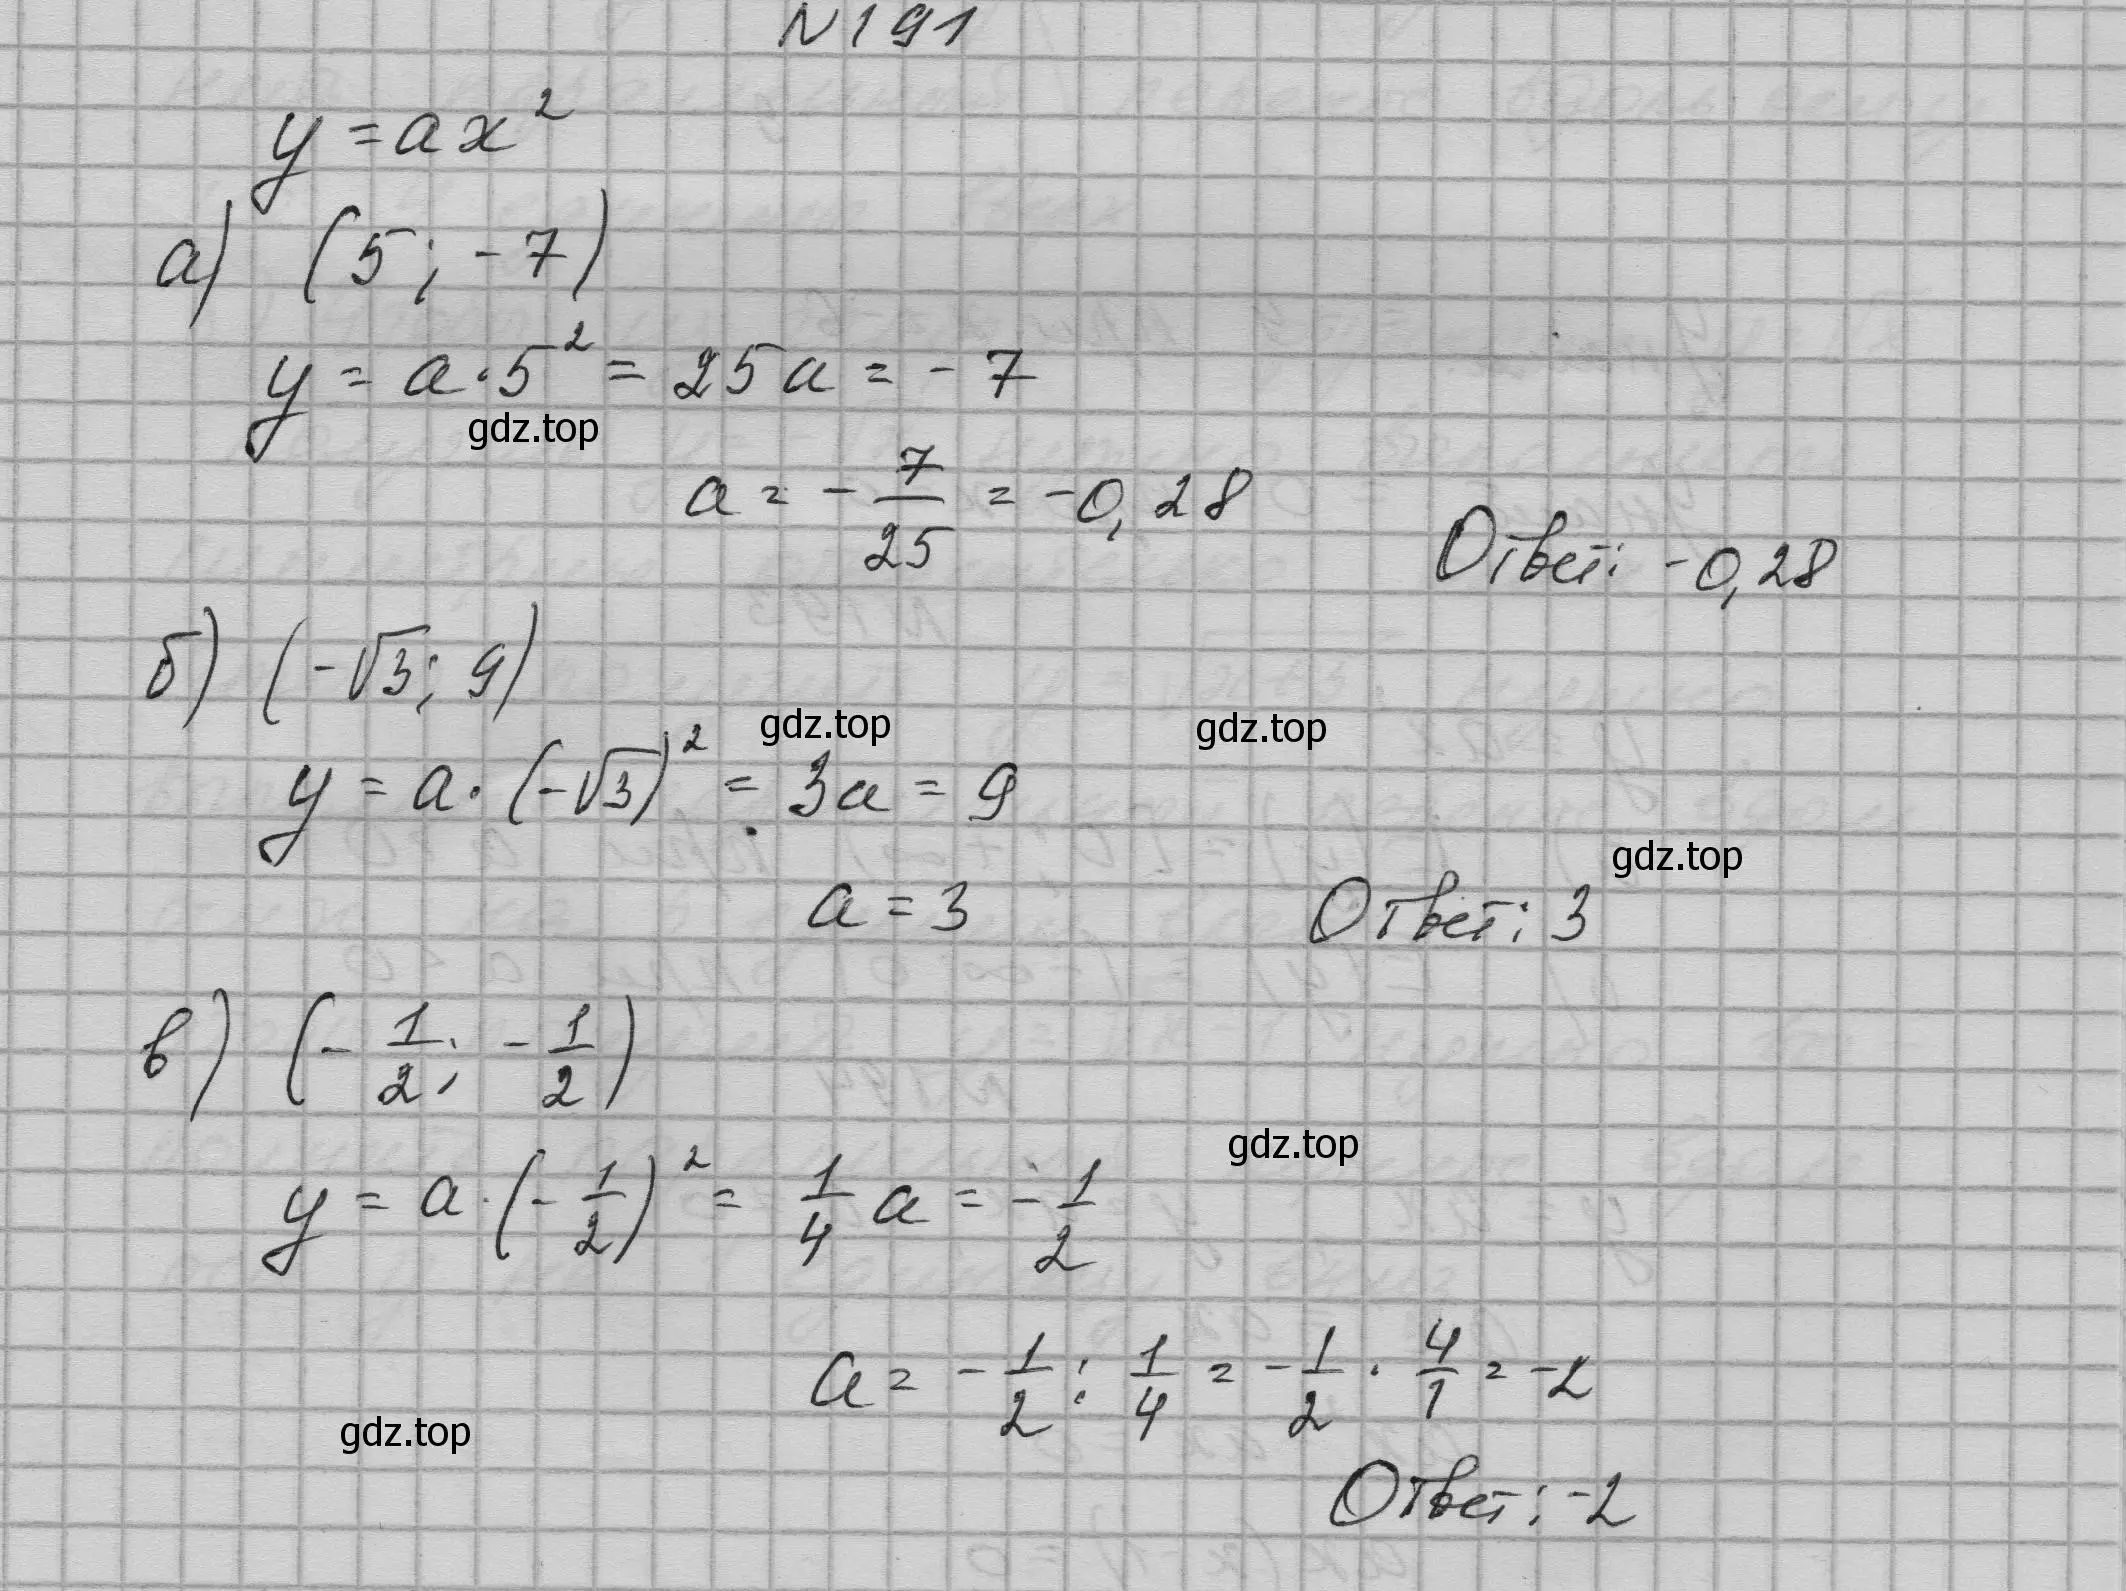 N191
y = ax²
а) (5; -7)
y = a·5² = 25a = -7
gdz.top
a = -7/25 = -0,28
Ответ: -0,28
б) (-√3; 9)
gdz.top
gdz.top
y = a·(-√3)² = 3a = 9
gdz.top
a = 3
Ответ: 3
в) (-1/2; -1/2)
gdz.top
y = a·(-1/2)² = 1/4 a = -1/2
a = -1/2 : 1/4 = -1/2 · 4/1 = -2
gdz.top
Ответ: -2